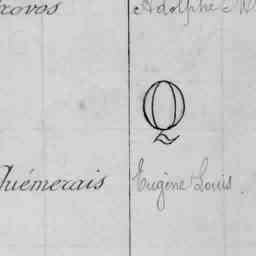 rovos Adolphe
Q
Quémerais Eugène Louis